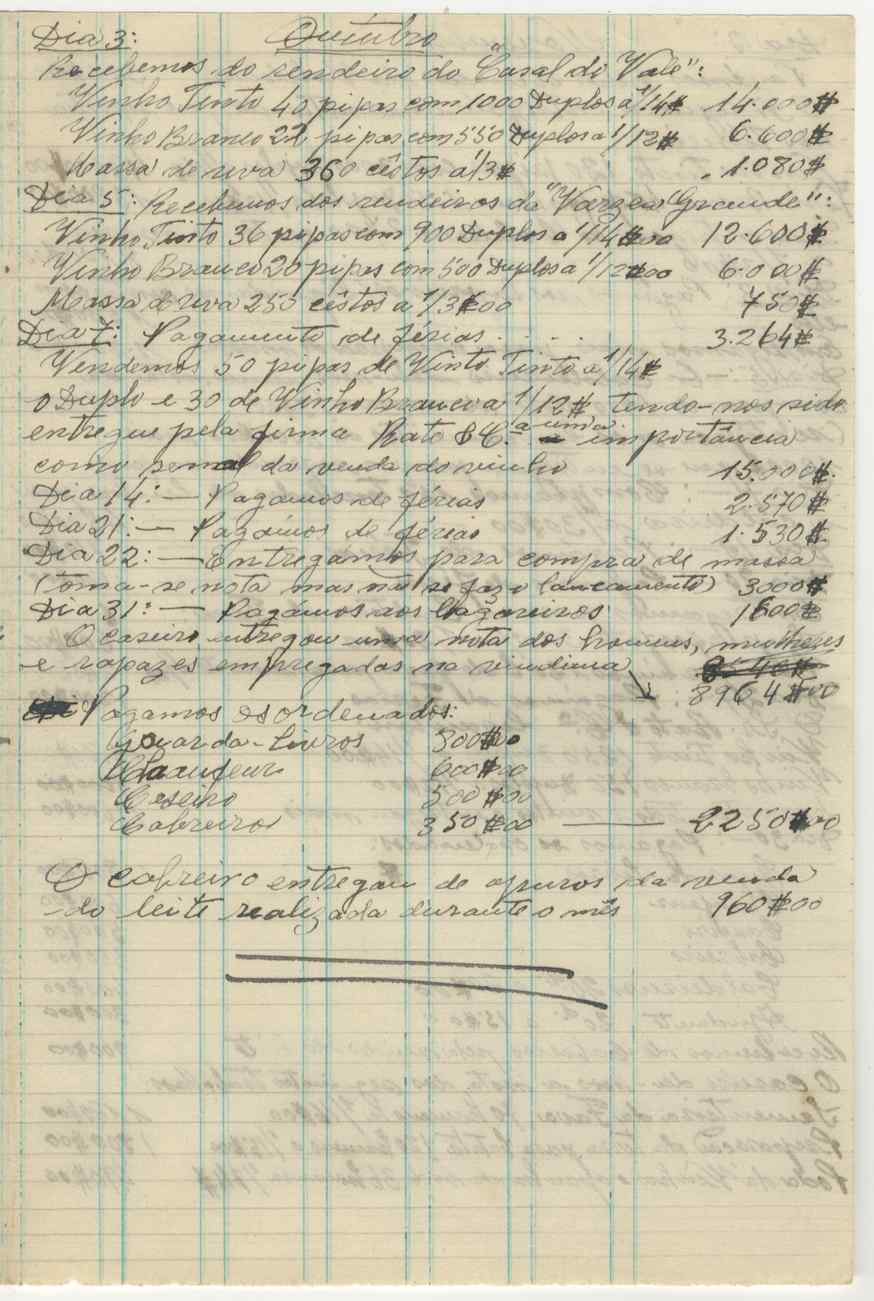 Dia 3: Outubro
Recebemos do rendeiro do "Casal do Vale":
Vinho Tinto 40 pipas com 1000 Duplos a 1/14$ 14.000$
Vinho Branco 22 pipas com 550 Duplos a 1/12$ 6.600$
Massa de uva 360 cêstos a 1/3$ 1.080$
Dia 5: Recebemos dos rendeiros da "Varzea Grande":
Vinho Tinto 36 pipas com 900 Duplos a 1/14$00 12.600$
Vinho Branco 20 pipas com 500 Duplos a 1/12$00 6.000$
Massa d uva 250 cêstos a 1/3$00 750$
Dia 7: Pagamento de férias . . . . 3.264$
Vendemos 50 pipas de Vinto Tinto a 1/14$
o Duplo e 30 de Vinho Branco a 1/12$ tendo-nos sido
entregue pela firma Rato & C.ª a uma importância
como senal da venda do vinho 15.000$
Dia 14: — Pagamos de férias 2.570$
Dia 21: — Pagámos de férias 1.530$
Dia 22: — Entregamos para compra de massa
(toma-se nota mas não se faz o lancamento) 3000$
Dia 31: — Pagámos aos lagareiros 1600$
O caseiro entregou uma nota dos homens, mulheres
e rapazes empregadas na vindima
8964$00
Pagamos os ordenados:
Guarda-Livros 800$00
Chaufeur 600$00
Caseiro 500$00
Cabreiros 350$00 — 2250$00
O cabreiro entregou de apuros da venda
do leite realizada durante o mês 960$00